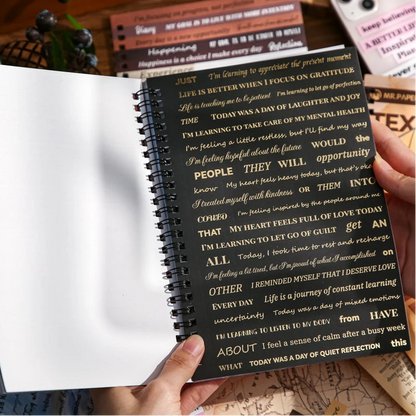 I'm focusing on progress, not
Diary MY GOAL IS TO LIVE WITH MORE INTENTION
Happening
Happiness is a choice I make every day Reflection
EXPERIENCE
keep believing
A BETTER LIFE
Imagine
Inspiration
MR.PAPER
TEX
JUST I'm learning to appreciate the present moment
LIFE IS BETTER WHEN I FOCUS ON GRATITUDE
Life is teaching me to be patient I'm learning to let go of perfection
TIME TODAY WAS A DAY OF LAUGHTER AND JOY
I'M LEARNING TO TAKE CARE OF MY MENTAL HEALTH
I'm feeling a little restless, but I'll find my way
I'm feeling hopeful about the future WOULD the
PEOPLE THEY WILL opportunity
know My heart feels heavy today, but that's okay
I treated myself with kindness OR THEM INTO
I'm feeling inspired by the people around me
AN MY HEART FEELS FULL OF LOVE TODAY
I'M LEARNING TO LET GO OF GUILT get AN
ALL Today, I took time to rest and recharge
I'm feeling a bit tired, but I'm proud of what I accomplished on
OTHER I REMINDED MYSELF THAT I DESERVE LOVE
EVERY DAY Life is a journey of constant learning
uncertainty Today was a day of mixed emotions
I'M LEARNING TO LISTEN TO MY BODY from HAVE
ABOUT I feel a sense of calm after a busy week
WHAT TODAY WAS A DAY OF QUIET REFLECTION this